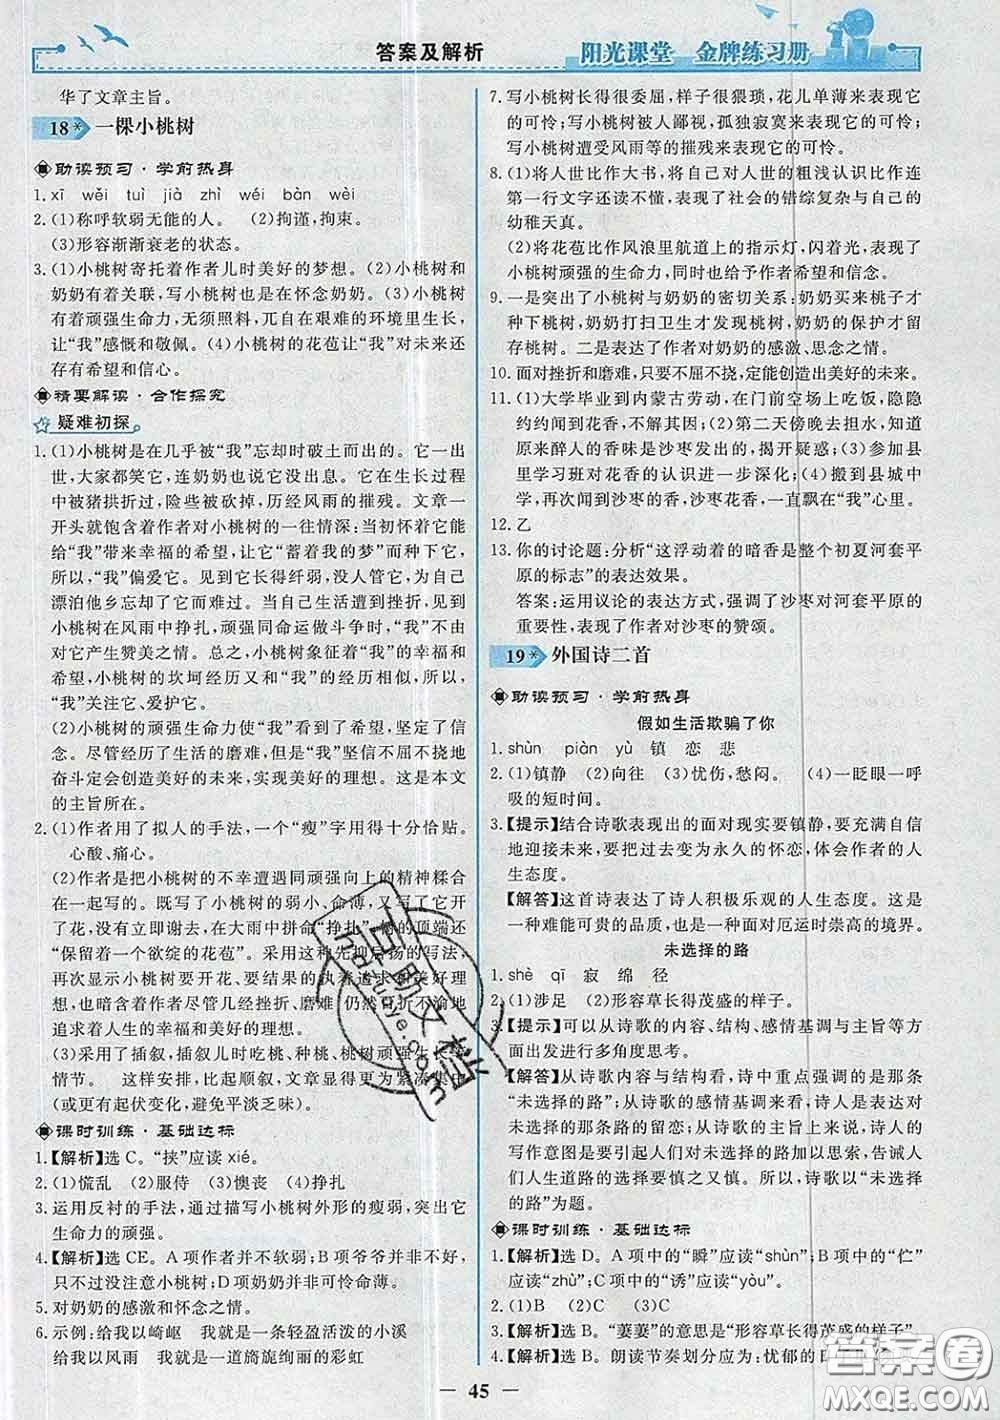 答案及解析
阳光课堂 金牌练习册
华了文章主旨。
18* 一棵小桃树
助读预习·学前热身
1. xī wěi tuì jià zhì wéi bàn wèi
2. (1)称呼软弱无能的人。 (2)拘谨,拘束。
(3)形容渐渐衰老的状态。
3. (1)小桃树寄托着作者儿时美好的梦想。(2)小桃树和
奶奶有着关联,写小桃树也是在怀念奶奶。(3)小桃树
有着顽强生命力,无须照料,兀自在艰难的环境里生长,
让“我”感慨和敬佩。(4)小桃树的花苞让“我”对未来
存有希望和信心。
精要解读·合作探究
疑难初探
1. (1)小桃树是在几乎被“我”忘却时破土而出的。它一出
世,大家都笑它,连奶奶也说它没出息。它在生长过程
中被猪拱折过,险些被砍掉,历经风雨的摧残。文章一
开头就饱含着作者对小桃树的一往情深:当初怀着它能
给“我”带来幸福的希望,让它“蓄着我的梦”而种下它,
所以,“我”偏爱它。见到它长得纤弱,没人管它,为自己
漂泊他乡忘却了它而难过。当自己生活遭到挫折,看到
小桃树在风雨中挣扎,顽强地同命运做斗争时,作者对
它产生赞美之情。小桃树象征着“我”自己,是“我”的
影子。小桃树的坎坷经历也就是“我”的坎坷经历,所以
“我”关注它、爱护它。
(2)小桃树的顽强生命力使“我”看到了希望,坚定了信
念。尽管经历了生活的磨难,但“我”坚信不屈不挠地
奋斗定会创造美好的未来,实现美好的理想。这是本文
的主旨所在。
2. (1)作者用了拟人的手法,一个“瘦”字用得十分恰贴。
心酸、痛心。
(2)作者是把小桃树的不幸遭遇同顽强向上的精神糅合
在一起写的。既写了小桃树的弱小、命薄,没有人管它,
花儿开得又弱又小,在大雨中拼命“挣扎”,树的顶端还
“保留着一个欲绽的花苞”。采用这种先抑后扬的写法,
再次揭示小桃树要开花、要结果的执着追求和美好理
想,暗喻着作者尽管儿经挫折、磨难,仍然百折不渝地
追求着人生的幸福和美好的理想。
(3)采用了插叙,插叙儿时吃桃、种桃、桃树顽强生长等
情节。 这样安排,比起顺叙,文章显得更为紧凑集中
(或更有起伏变化,避免平淡乏味)。
课时训练·基础达标
1.【解析】选 C。“挟”应读 xié。
2. (1)慌乱 (2)服侍 (3)懊丧 (4)挣扎
3. 运用反衬的手法,通过描写小桃树外形的瘦弱,突出它
生命力的顽强。
4.【解析】选 CE。A 项作者并不软弱;B 项爷爷并非可怕,
只不过没注意小桃树;D 项奶奶并非可怜命薄。
5. 对奶奶的感激和怀念之情。
6. 示例:给我以崎岖 我就是一条轻盈活泼的小溪
给我以风雨 我就是一道旖旎绚丽的彩虹
7. 写小桃树长得很委屈,样子很猥琐,花儿单薄来表现它
的可怜;写小桃树被人鄙视,孤独寂寞来表现它的可怜;
写小桃树遭受风雨等的摧残来表现它的可怜。
8. (1)将人世比作大书,将自己对人世的粗浅认识比作连
第一行文字还读不懂,表现了社会的错综复杂与自己的
幼稚天真。
(2)将花苞比作风浪里航道上的指示灯,闪着光,表现了
小桃树顽强的生命力,同时也给予作者希望和信念。
9. 一是突出了小桃树与奶奶的密切关系:奶奶买来桃子才
种下桃树,奶奶打扫卫生才发现桃树,奶奶的保护才留
存桃树。二是表达了作者对奶奶的感激、思念之情。
10. 面对挫折和磨难,只要不屈不挠,定能创造出美好的未来。
11. (1)大学毕业到内蒙古劳动,在门前空场上吃饭,隐隐
约约闻到花香,不解何故;(2)第二天傍晚去担水,知道
原来醉人的香味是沙枣发出的,揭开疑惑;(3)参加县
里学习班对花香的认识进一步深化;(4)搬到县城中
学,再次闻到沙枣花香,一直飘在“我”心里。
12. 乙
13. 你的讨论题:分析“这浮动着的暗香是整个初夏河套平
原的标志”的表达效果。
答案:运用议论的表达方式,强调了沙枣对河套平原的
重要性,表现了作者对沙枣的赞颂。
19* 外国诗二首
助读预习·学前热身
假如生活欺骗了你
1. shùn piàn yù 镇 恋 悲
2. (1)镇静 (2)向往 (3)忧伤,愁闷。 (4)一眨眼一呼
吸的短时间。
3.【提示】结合诗歌表现出的面对现实要镇静,要充满自信
地迎接未来,要把过去变为永久的怀恋,体会作者的人
生态度。
【解答】这首诗表现了诗人积极乐观的人生态度。这是
一种难能可贵的品质,也是一种面对厄运时崇高的境界。
未选择的路
1. shè qī 寂 绵 径
2. (1)涉足 (2)形容草长得茂盛的样子。
3.【提示】可以从诗歌的内容、结构、感情基调与主旨等方
面出发进行多角度思考。
【解答】从诗歌内容与结构看,诗中重点强调的是那条
“未选择的路”;从诗歌的感情基调来看,诗人表达对
未选择的那条路的留恋;从诗歌的主旨上来看,诗人的
写作意图是要引导人们对未选择的路加以思索,告诫人
们人生道路的选择要慎之又慎。所以,诗人以“未选择
的路”为题。
课时训练·基础达标
1.【解析】选 D。A 项中的“瞬”应读“shùn”;B 项中的“伫”
应读“zhù”;C 项中的“诱”应读“yòu”。
2. (1)B (2)C (3)C
3.【解析】选 B。“萋萋”的意思是“形容草长得茂盛的样子”。
4.【解析】选 B。朗读节奏划分应为:忧郁的
45
答案圈
MXQE.COM